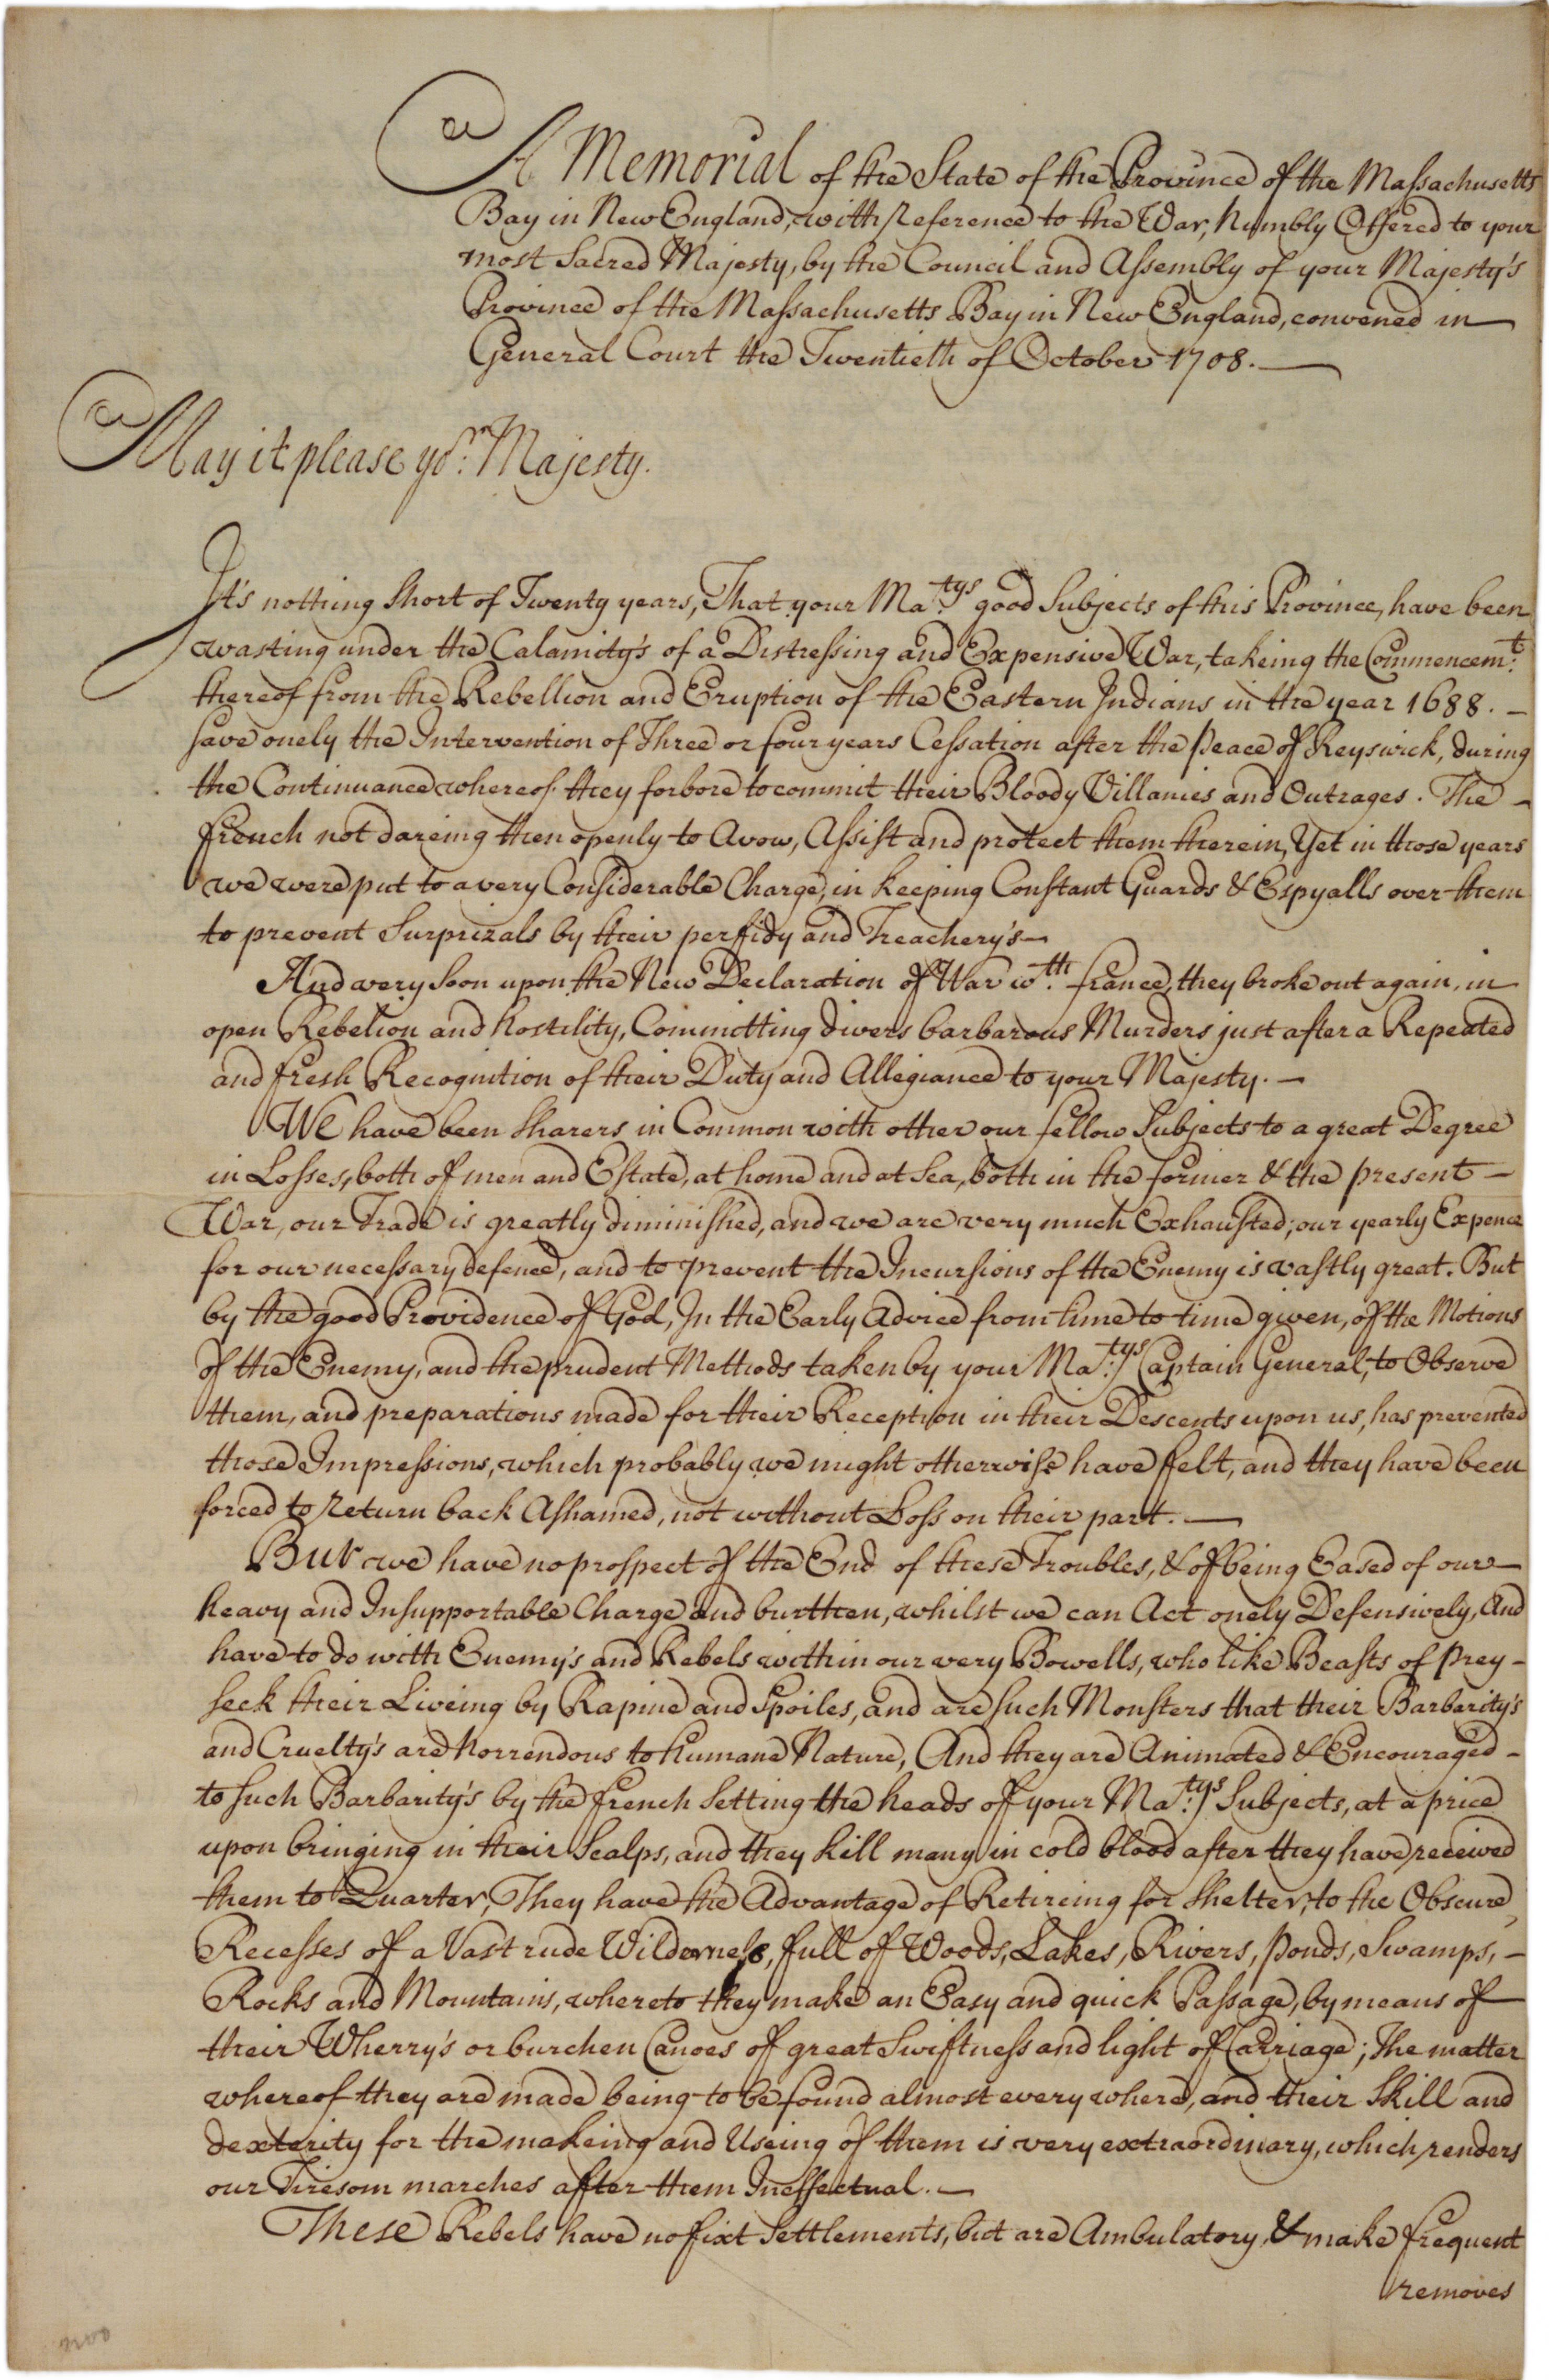 A Memorial of the State of the Province of the Massachusetts
Bay in New England, with Reference to the War, humbly Offered to your
most Sacred Majesty, by the Council and Assembly of your Majesty's
Province of the Massachusetts Bay in New England, convened in
General Court the Twentieth of October 1708.
May it please yor: Majesty.
It's nothing short of Twenty years, That your Ma:tys good Subjects of this Province, have been
wasting under the Calamity's of a Distressing and Expensive War, takeing the Commencem:t
thereof from the Rebellion and Eruption of the Eastern Indians in the year 1688. –
save onely the Intervention of Three or four years Cessation after the peace of Reyswick, during
the Continuance whereof they forbore to commit their Bloody Villanies and Outrages. The –
french not dareing then openly to Avow, Assist and protect them therein, Yet in those years
we were put to a very Considerable Charge, in keeping Constant Guards & Espyalls over them
to prevent Surprizals by their perfidy and Treachery's –
And very soon upon the New Declaration of War w:th france, they broke out again, in
open Rebelion and hostility, Committing divers barbarous Murders just after a Repeated
and fresh Recognition of their Duty and Allegiance to your Majesty. –
We have been sharers in Common with other our fellow Subjects to a great Degree
in Losses, both of men and Estate, at home and at Sea, both in the former & the present –
War, our Trade is greatly diminished, and we are very much Exhausted; our yearly Expence
for our necessary defence, and to prevent the Incursions of the Enemy is vastly great. But
by the good Providence of God, In the Early Advice from time to time given, of the Motions
of the Enemy, and the prudent Methods taken by your Ma:tys Captain General, to Observe
them, and preparations made for their Reception in their Descents upon us, has prevented
those Impressions, which probably we might otherwise have felt, and they have been
forced to return back Ashamed, not without Loss on their part. –
But we have no prospect of the End of these Troubles, & of being Eased of our –
heavy and Insupportable Charge and burthen, whilst we can Act onely Defensively, And
have to do with Enemy's and Rebels within our very Bowells, who like Beasts of prey –
seek their Liveing by Rapine and Spoiles, and are such Monsters that their Barbarity's
and Cruelty's are horrendous to humane Nature, And they are Animated & Encouraged –
to such Barbarity's by the french Setting the heads of your Ma:tys Subjects, at a price
upon bringing in their Scalps, and they kill many in cold blood after they have received
them to Quarter, They have the Advantage of Retireing for shelter, to the Obscure
Recesses of a Vast rude Wilderness, full of Woods, Lakes, Rivers, ponds, Swamps, –
Rocks and Mountains, whereto they make an Easy and quick Passage, by means of
their Wherry's or burchen Canoes of great Swiftness and light of Carriage; The matter
whereof they are made being to be found almost every where, and their Skill and
dexterity for the makeing and Useing of them is very extraordinary, which renders
our Tiresom marches after them Ineffectual. –
These Rebels have no fixt Settlements, but are Ambulatory, & make frequent
removes